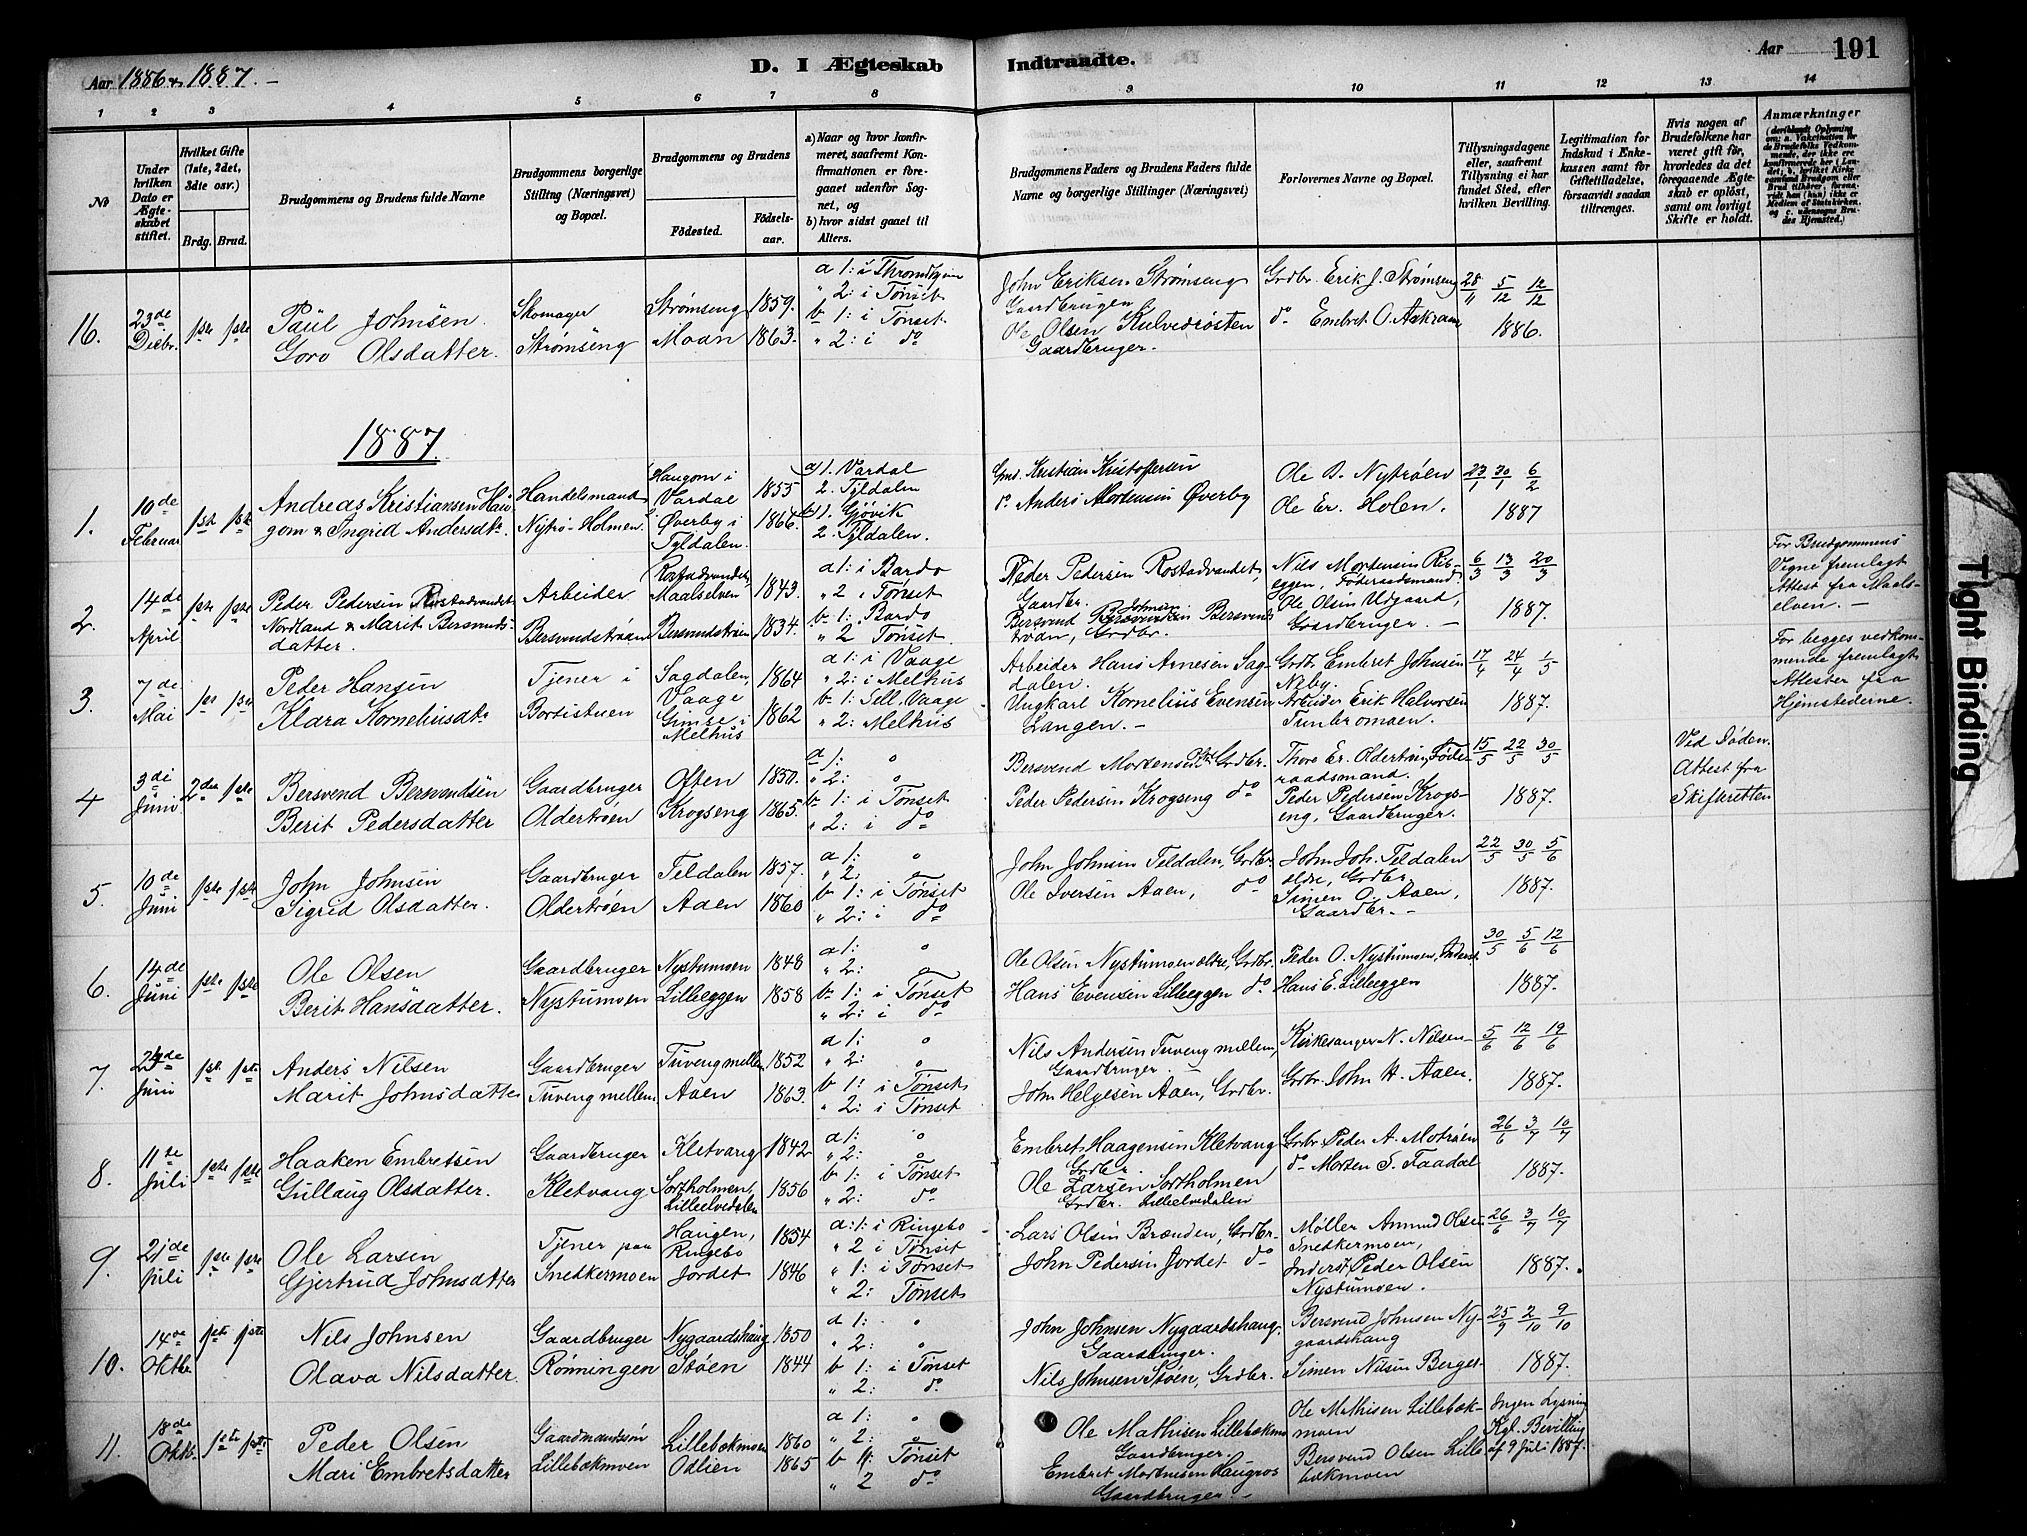 Aar 1886 & 1887. –
D. I Ægteskab Indtraadte.
Aar 191
1 2 3 4 5 6 7 8 9 10 11 12 13 14
No
Under hvilken Dato er Ægteskabet stiftet.
Hvilket Gifte (1ste, 2det, 3die osv.)
Brdg. Brud.
Brudgommens og Brudens fulde Navne
Brudgommens borgerlige Stilling (Næringsvei) og Bopæl.
Brudgommens og Brudens
Fødested.
Fødselsaar.
a) Naar og hvor konfirmeret, saafremt Konfirmationen er foregaaet udenfor Sognet, og
b) hvor sidst gaaet til Alters.
Brudgommens Faders og Brudens Faders fulde Navne og borgerlige Stillinger (Næringsvei)
Forlovernes Navne og Bopæl.
Tillysningsdagene eller, saafremt Tillysning ei har fundet Sted, efter hvilken Bevilling.
Legitimation for Indskud i Enkekassen samt for Giftetilladelse, forsaavidt saadan tiltrænges.
Hvis nogen af Brudefolkene har været gift før, hvorledes da det foregaaende Ægteskab er opløst, samt om lovligt Skifte er holdt.
Anmærkninger
16. 23de Decbr. 1ste 1ste
Paul Johnsen
Goro Olsdatter.
Skomager
Strømseng
Strømseng 1859.
Moan 1863.
a 1: i Throndhjem
" 2: i Tønset
b 1: i Tønset
" 2: i do
John Eriksen Strømseng
Gaardbruger
Ole Olsen Kulvedrøsten
Gaardbruger.
Grdbr. Erik J. Strømseng
do Embret O. Aakrann
28/11 5/12 12/12
1886.
1887.
1. 10de Februar 1ste 1ste
Andreas Kristiansen Haugom & Ingrid Andersdtr.
Handelsmand
Nytrø-Holmen.
Haugom i Vardal 1855
Øverby i Tyldalen. 1866.
a) 1. Vardal
2. Tyldalen
b) 1. Gjøvik
2. Tyldalen.
Gmd. Kristian Kristofersen
do Anders Mortensen Øverby
Ole O. Nytrøen
Ole Er. Holen.
23/1 30/1 6/2
1887
2. 14de April 1ste 1ste
Peder Pedersen Rostadvandet
Nordland & Marit Bersvendsdatter.
Arbeider
Bersvendstrøen
Rostadvandet, Maalselven 1843.
Bersvendstrøen 1834.
a 1: i Bardo
" 2 i Tønset
b 1: Bardo
" 2 Tønset
Peder Pedersen Rostadvandet,
Gaardbr.
Bersvend Johnsen Bersvendstrøen, Grdbr.
Nils Mortensen Rib-
eggen, Føderaadsmand
Ole Olsen Udgaard,
Gaardbruger. –
6/3 13/3 20/3
1887.
For Brudgommens Vigne fremlagt Attest fra Maalselven. –
3. 7de Mai 1ste 1ste
Peder Hansen
Klara Korneliusdtr.
Tjener i
Borstistuen
Sagdalen, Vaage 1864
Gimse i Melhus 1862
a 1: i Vaage
" 2: i Melhus
b 1: Sell, Vaage
" 2: Melhus
Arbeider Hans Arnesen Sagdalen.
Ungkarl Kornelius Evensen
Langen. –
Grdbr. Embret Johnsen
Neby.
Arbeider Erik Halvorsen
Tunbromoen.
17/4 24/4 1/5
1887.
For begges vedkommende fremlagt Attester fra Hjemstederne.
4 3die Juni 2den 1ste
Bersvend Bersvendsen
Berit Pedersdatter
Gaardbruger
Oldertrøen
Often 1850.
Krogseng 1865.
a 1: o
" 2: o
b 1: i Tønset
" 2: i do
Bersvend Mortensen Grdbr.
Peder Pedersen Krogseng do
Thore Er. Oldertrøen, Føderaadsmand.
Peder Pedersen Krogseng, Gaardbruger.
15/5 22/5 30/5
1887.
Ved Døden. Attest fra Skifteretten
5. 10de Juni 1ste 1ste
John Johnsen
Sigrid Olsdatter.
Gaardbruger
Oldertrøen
Teldalen 1857.
Aaen 1860
a 1: o
" 2: o
b 1: i Tønset
" 2: i do
John Johnsen Teldalen, Grdbr.
Ole Iversen Aaen, do
John Joh. Teldalen
eldre, Grdbr.
Simen O. Aaen,
Gaardbr. –
22/5 30/5 5/6
1887.
6. 14de Juni 1ste 1ste
Ole Olsen
Berit Hansdatter.
Gaardbruger
Nystumoen
Nystumoen 1848
Lilleeggen 1858
a 1: o
" 2: o
b 1: i Tønset
" 2: i do
Ole Olsen Nystumoen eldre, Grdbr.
Hans Evensen Lilleeggen do
Peder O. Nystumoen, Inderst
Hans E. Lilleeggen
30/5 5/6 12/6
1887.
7. 24de Juni 1ste 1ste
Anders Nilsen
Marit Johnsdatter
Gaardbruger
Tuveng mellem
Tuveng mellem 1852
Aaen 1863.
a 1: o
" 2: o
b 1: i Tønset
" 2: i Tønset
Nils Andersen Tuveng mellem,
Gaardbruger. –
John Helgesen Aaen, Grdbr.
Kirkesanger N. Nilsen
Grdbr. John H. Aaen.
5/6 12/6 19/6
1887.
8. 11te Juli 1ste 1ste
Haaken Embretsen
Gullaug Olsdatter.
Gaardbruger
Kletvang
Kletvang 1842
Sortholmen, Lilleelvedalen 1856
a 1: o
" 2: o
b 1: i Tønset
" 2: do
Embret Haagensen Kletvang
Grdbr.
Ole Larsen Sortholmen
Grdbr. Lilleelvedalen
Grdbr. Peder A. Motrøen
do Morten S. Faadal
26/6 3/7 10/7
1887.
9. 21de Juli 1ste 1ste
Ole Larsen
Gjertrud Johnsdatter
Tjener paa
Snedkermoen
Haugen, Ringebo 1854
Jordet 1846
a: 1: i Ringebo
" 2 i Tønset
" 1: i Tønset
" 2: Tønset
Lars Olsen Brænden, Grdbr.
John Pedersen Jordet do
Møller Amund Olsen
Snedkermoen,
Inderst Peder Olsen
Nystumoen.
26/6 3/7 10/7
1887.
10. 14de Octbr. 1ste 1ste
Nils Johnsen
Olava Nilsdatter.
Gaardbruger
Rønningen
Nygaardshaug 1850
Støen 1844
a 1: o
" 2: o
b 1: i Tønset
" 2: do
John Johnsen Nygaardshaug.
Gaardbruger.
Nils Johnsen Støen, Grdbr.
Bersvend Johnsen Nygaardshaug
Simen Nilsen Berget
25/9 2/10 9/10
1887.
11. 18de Oktbr. 1ste 1ste
Peder Olsen
Mari Embretsdatter
Gaardmandssøn
Lillebækmoen
Lillebækmoen 1860
Odlien 1865
a 1: o
" 2: o
b 1: Tønset
" 2 do
Ole Mathisen Lillebækmo
Gaardbruger.
Embret Mortensen Haugros
Gaardbruger. –
Ole Mathisen Lillebækmoen
Bersvend Olsen Lillebækmoen
Ingen Lysning
Kgl. Bevilling
af 9 Juli 1887.
Tight Binding